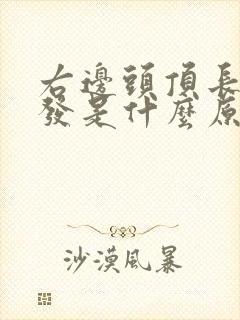 右邊頭頂長
發是什麼原
沙漠風暴